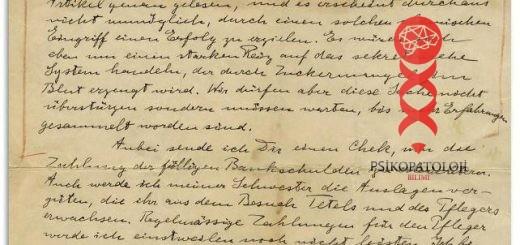 Artikel genau gelesen, und es erscheint durchaus
nicht unmöglich, durch einen solchen
Eingriff einen Erfolg zu erzielen. Es
eben um einen starken Reiz auf das
System handeln, der durch Zuckermangel im
Blut erzeugt wird. Wir dürfen aber diese Sache nicht
überstürzen sondern müssen warten, bis Erfahrungen
gesammelt worden sind.
Anbei sende ich Dir einen Chek, um die
Zahlung der fälligen Bankschulden
Auch werde ich meiner Schwester die Auslagen ver-
güten, die ihr aus dem Besuch Tetels und des Pflegers
erwachsen. Regelmässige Zahlungen für den Pfleger
werde ich einstweilen noch nicht leisten. Ich
PSİKOPATOLOJİ
BİLİMİ